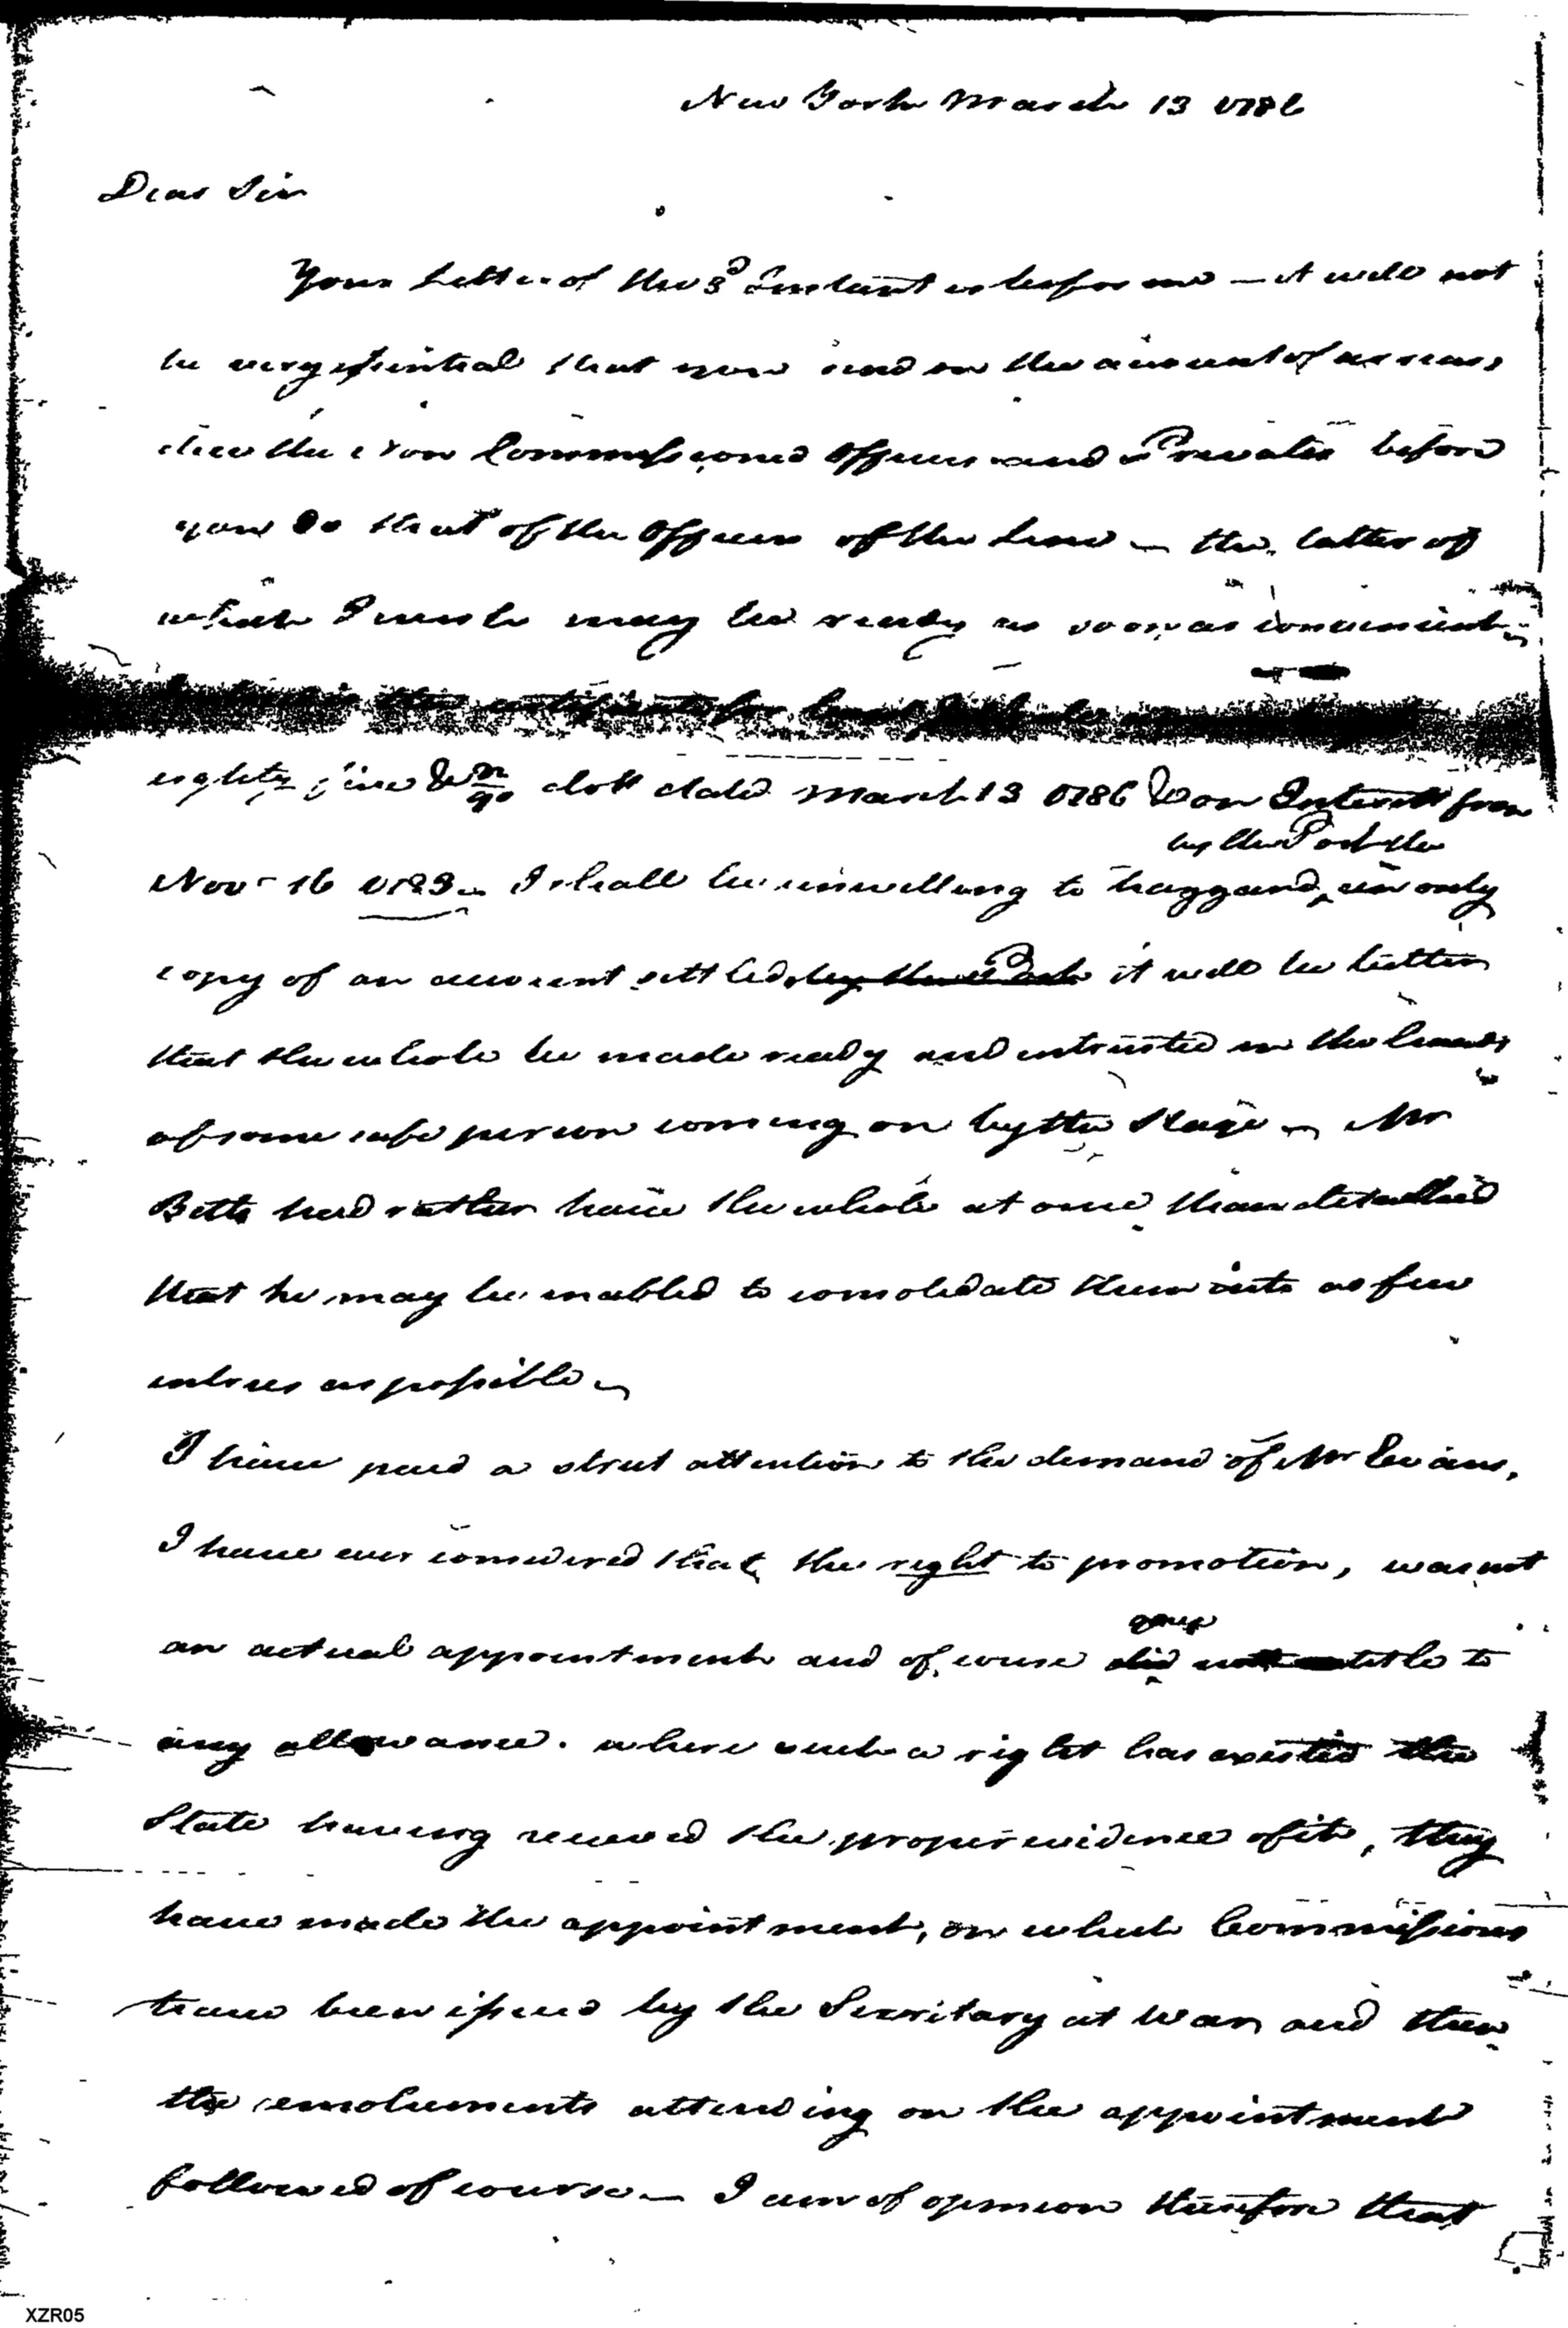 New York March 13 1786
Dear Sir
Your Letter of the 3d Instant is before me — it will not
be very essential that you send on the account of arrears
due the Non Commissioned Officers and Privates before
you do that of the Officers of the Line — the latter of
which I wish may be ready as soon as convenient
the certificate for
eighty five & 72/90 doll dated March 13 1786 & on Interest from
by the Post the
Nov 16 1783 — I shall be unwilling to hazzard, an only
copy of an account settled, by the Post it will be better
that the whole be made ready and intrusted in the hands
of some safe person coming on by the Stage — Mr
Betts had rather have the whole at once than detailed
that he may be enabled to consolidate them into as few
entries as possible —
I have paid a strict attention to the demand of Mr Evans,
I have ever considered that, the right to promotion, was not
an actual appointment and of course did not title to
gave
any allowance. where such a right has existed the
State having received the proper evidence of it, they
have made the appointment, on which Commissions
have been issued by the Secretary at War, and then
the emoluments attending on the appointment
followed of course — I am of opinion therefore that
XZR05